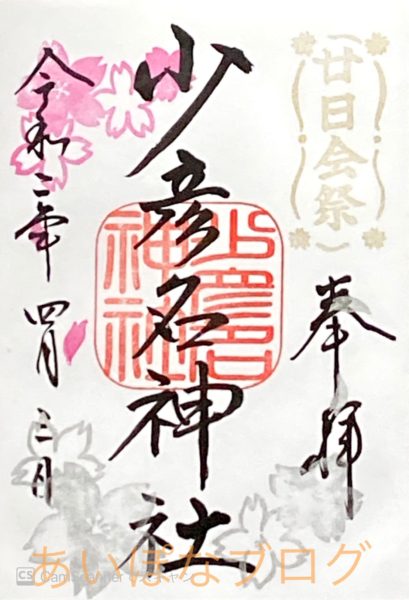 廿日会祭
奉拝
少彦名神社
少彦名
神社
令和二年四月三日
あいぽなブログ
CS CamScanner でスキャン